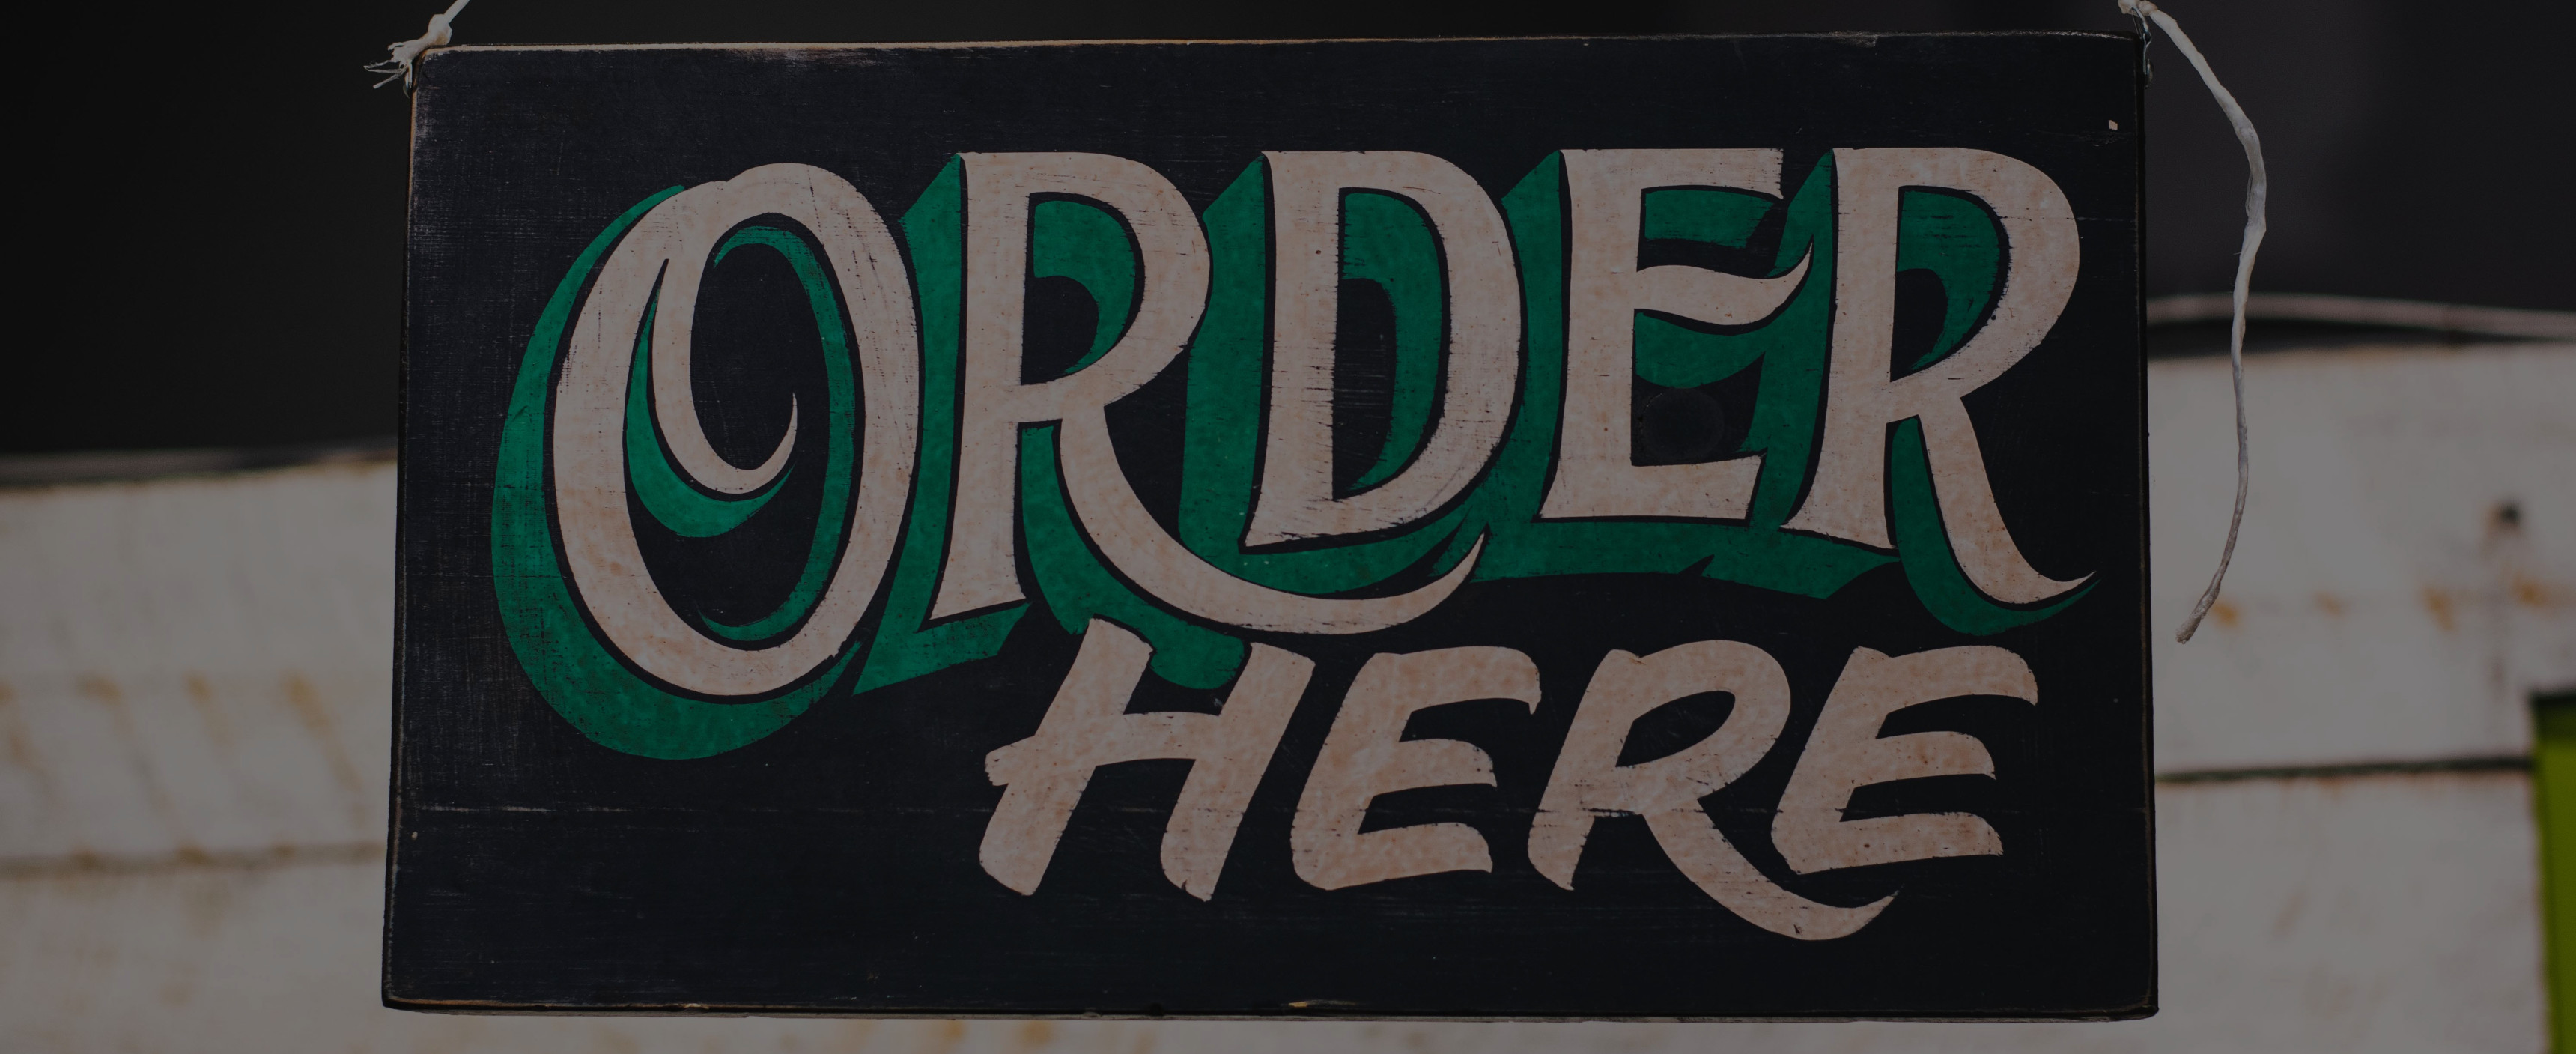 ORDER
HERE